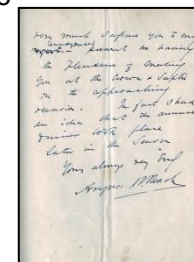 very much I afraid you to me
engagement
prevent me having
the Pleasure of Meeting
you at the Crown & Sceptre
on the approaching
occasion. In fact I had
an idea that the annual
dinner took place
later in the Season
Yours always very truly
Angus B Reach